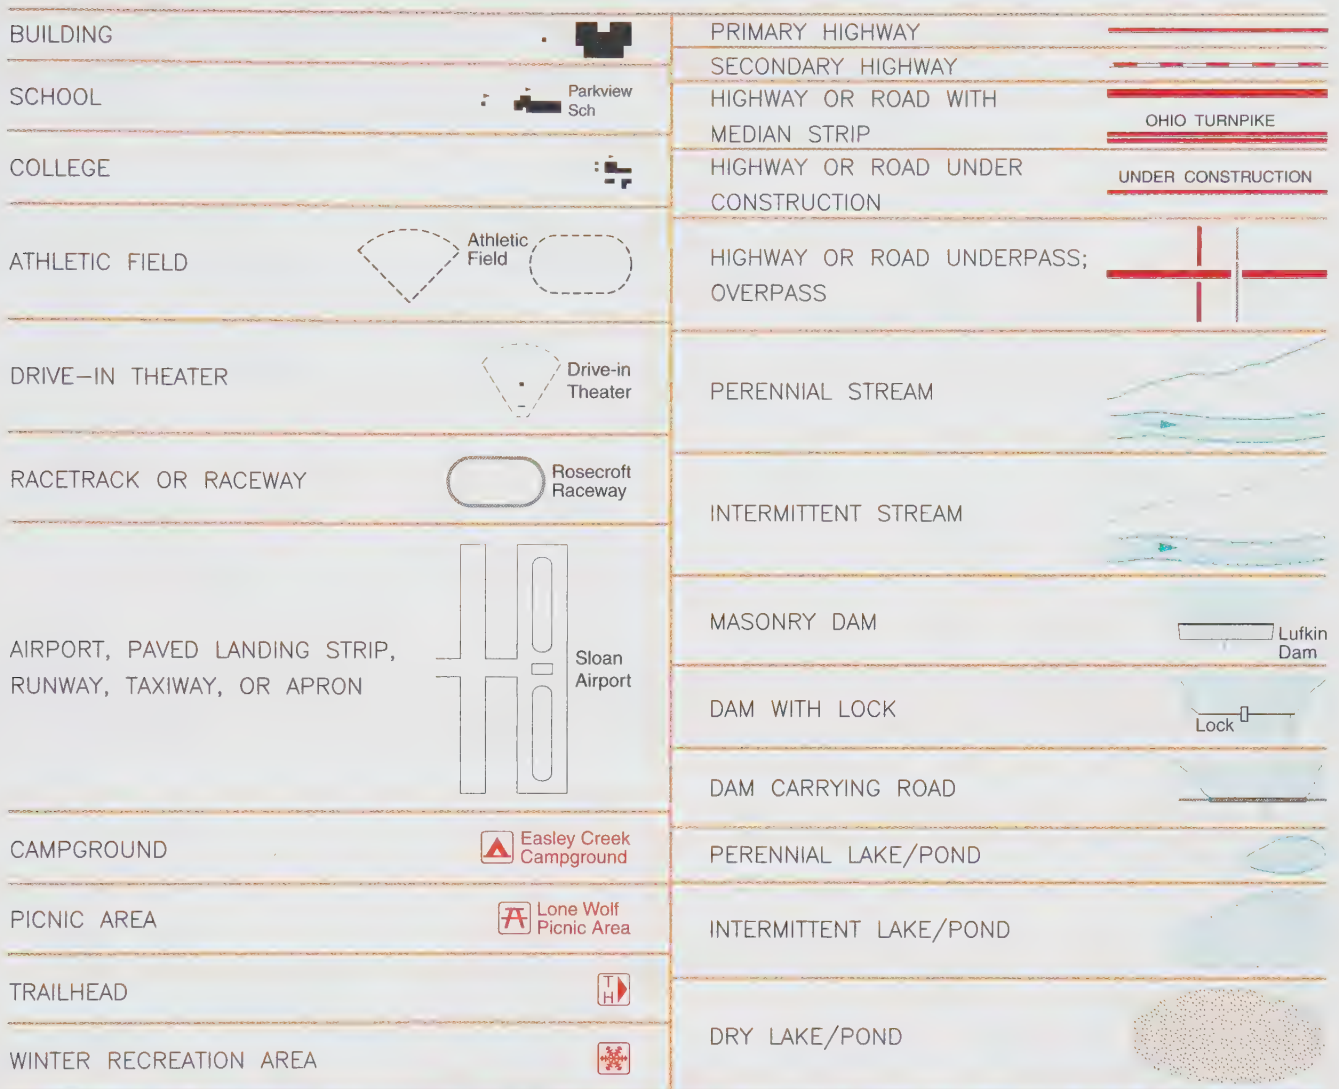 BUILDING
SCHOOL
Parkview
Sch
COLLEGE
ATHLETIC FIELD
Athletic
Field
DRIVE-IN THEATER
Drive-in
Theater
RACETRACK OR RACEWAY
Rosecroft
Raceway
AIRPORT, PAVED LANDING STRIP,
RUNWAY, TAXIWAY, OR APRON
Sloan
Airport
CAMPGROUND
Easley Creek
Campground
PICNIC AREA
Lone Wolf
Picnic Area
TRAILHEAD
T
H
WINTER RECREATION AREA
PRIMARY HIGHWAY
SECONDARY HIGHWAY
HIGHWAY OR ROAD WITH
MEDIAN STRIP
OHIO TURNPIKE
HIGHWAY OR ROAD UNDER
CONSTRUCTION
UNDER CONSTRUCTION
HIGHWAY OR ROAD UNDERPASS;
OVERPASS
PERENNIAL STREAM
INTERMITTENT STREAM
MASONRY DAM
Lufkin
Dam
DAM WITH LOCK
Lock
DAM CARRYING ROAD
PERENNIAL LAKE/POND
INTERMITTENT LAKE/POND
DRY LAKE/POND